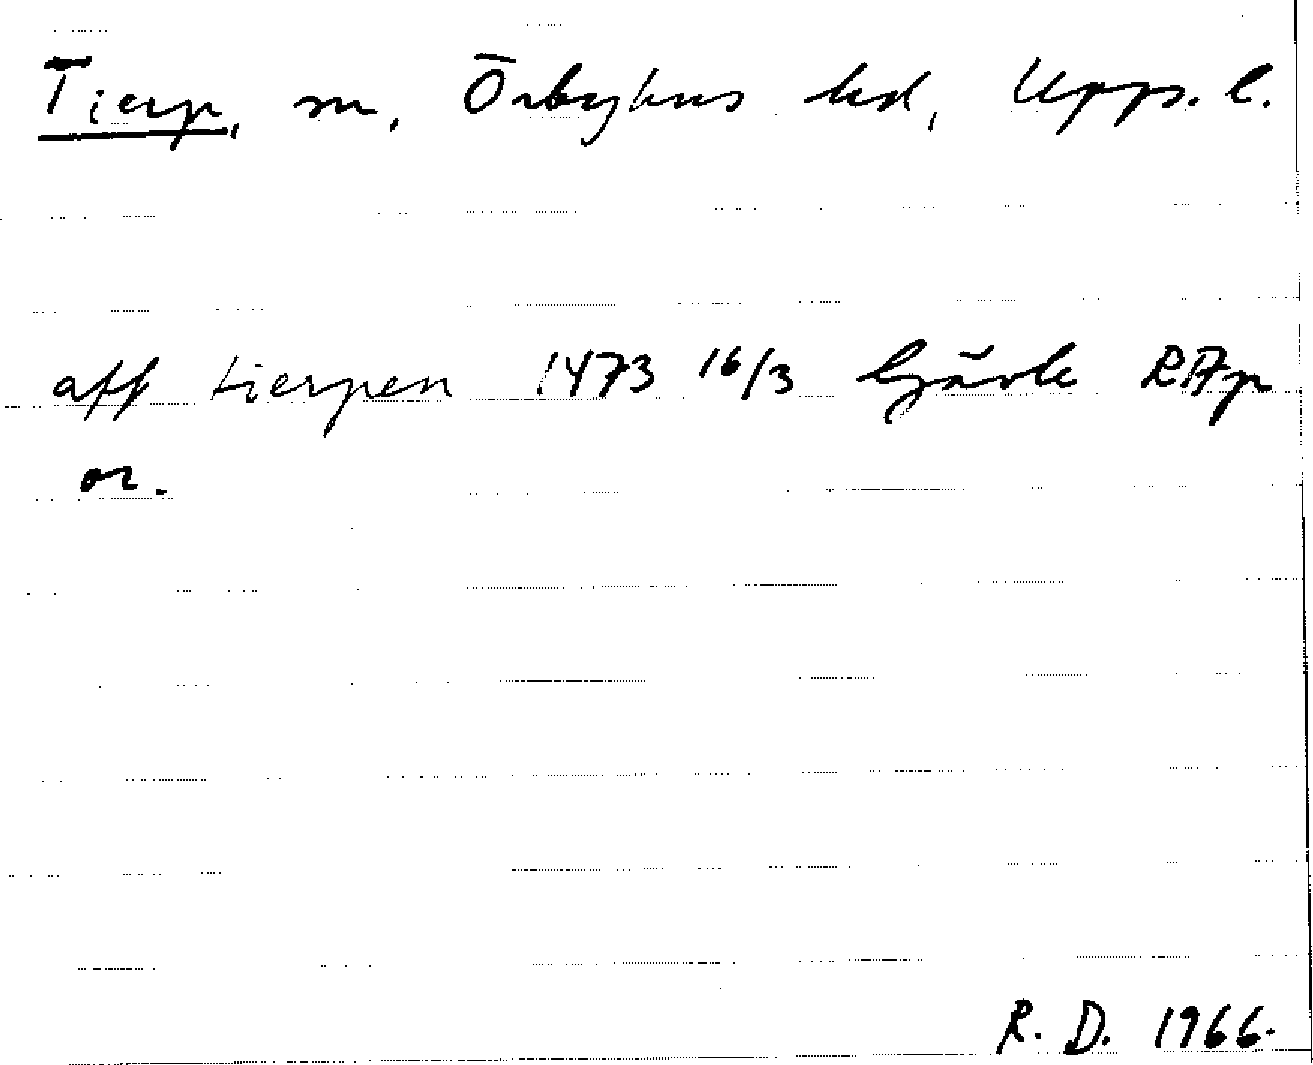 Tierp, sn, Örbyhus hd, Upps. l.
aff tierpen 1473 16/3 Gävle RAp
or.
R. D. 1966.